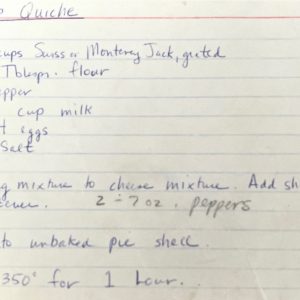 Quiche
cups Swiss or Monterey Jack, grated
Tblsps. flour
pepper
cup milk
eggs
Salt
mixture to cheese mixture. Add sh
2 - 7 oz. peppers
to unbaked pie shell.
350° for 1 hour.